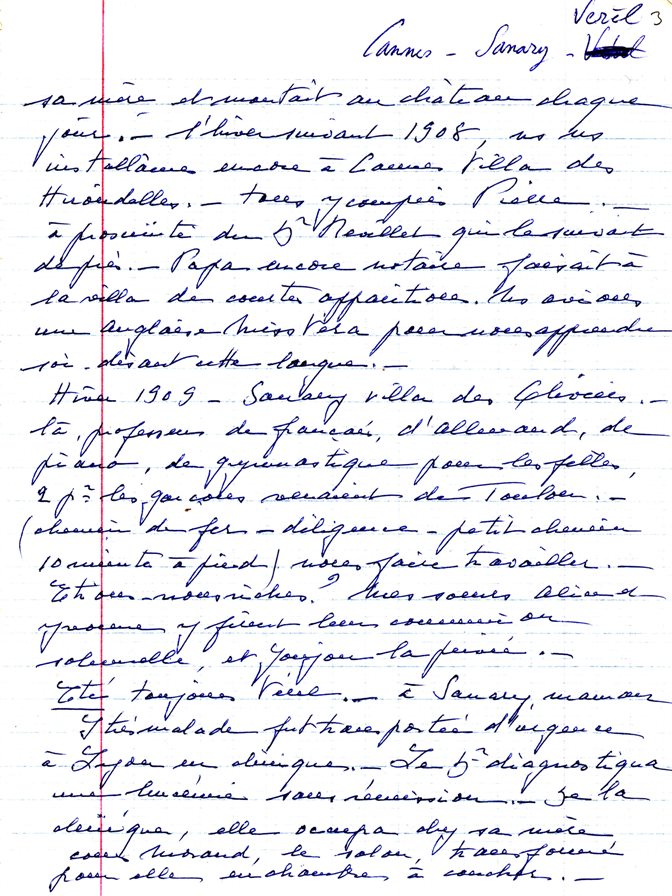 Veröl 3
Cannes - Sanary -
sa mère et montait au château chaque
jour. - L'hiver suivant 1908, ns ns
installâmes encore à Cannes Villa des
Hirondelles. - tous y compris Pierre. -
à proximité du Dr Revillet qui le suivait
de près. - Papa encore notaire faisait à
la villa de courtes apparitions. Ns avions
une anglaise Miss Véra pour nous apprendre
soi-disant cette langue. -
Hiver 1909 - Sanary villa des Oliviers. -
là, professeurs de français, d'allemand, de
piano, de gymnastique pour les filles,
2 pr les garçons venaient de Toulon. -
(chemin de fer - diligence - petit chemin
10 minutes à pied) nous faire travailler. -
Etions-nous riches? Mes soeurs Alice et
Yvonne y firent leur communion
solennelle, et Joujou la privée. -
Eté toujours - à Sanary, maman
très malade fut transportée d'urgence
à Lyon en clinique. - Le Dr diagnostiqua
une leucémie sans rémission. - De la
clinique, elle occupa chez sa mère
cours Morand, le salon, transformé
pour elle en chambre à coucher. -